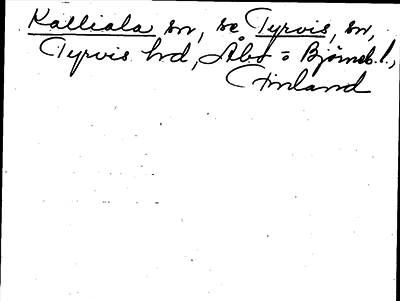 Kalliala sn, se Tyrvis, sn,
Tyrvis hd, Åbo = Björneb. l.,
Finland